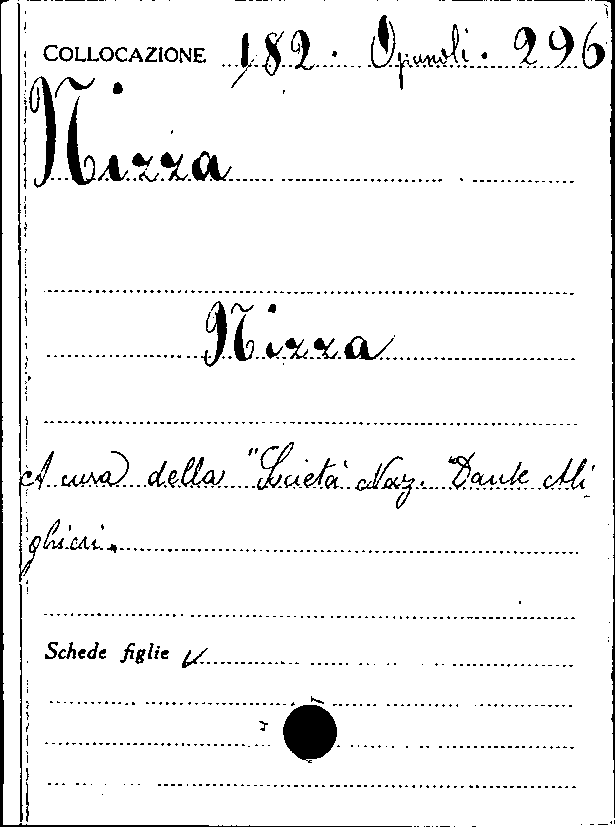 COLLOCAZIONE 182. Opuscoli. 296
Nizza
Nizza
A cura della "Società Naz. Dante Ali
ghieri.
Schede figlie